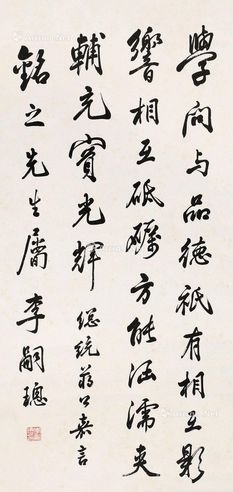 學问与品德祇有相互影
響相互砥礪方能涵濡夾
輔充實光輝 總統蔣公嘉言
銘之先生屬 李嗣璁